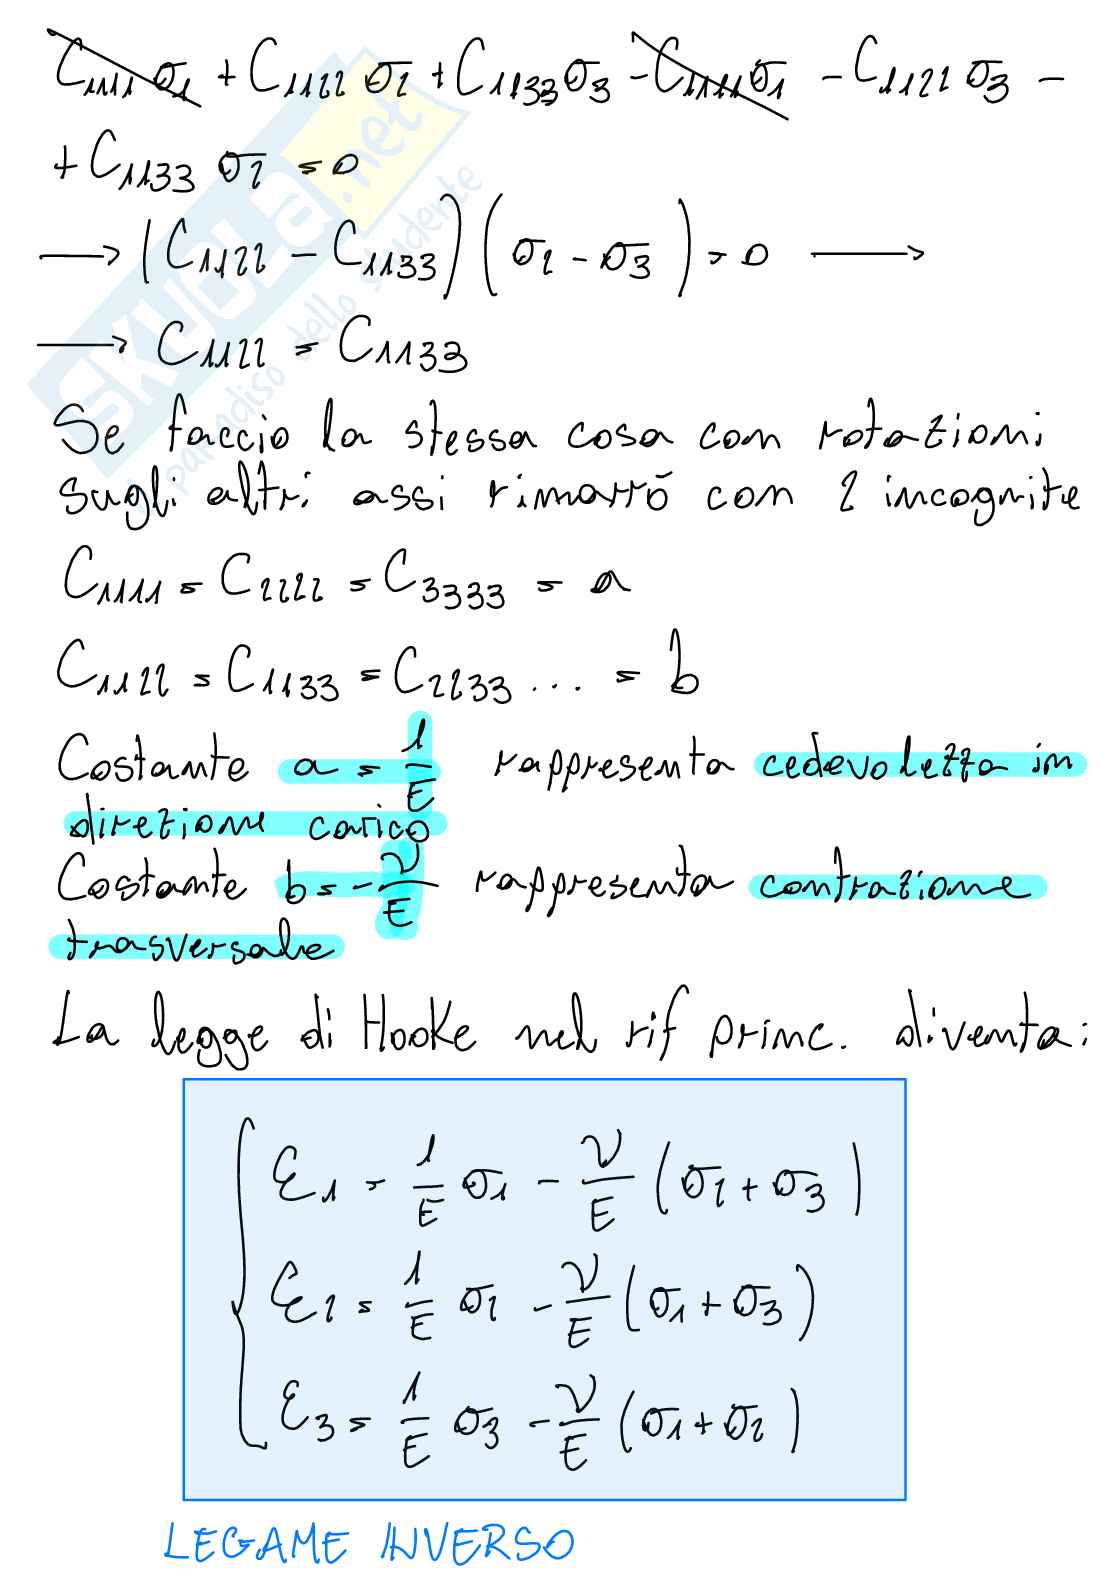 C₁₁₁₁ σ₁ + C₁₁₂₂ σ₂ + C₁₁₃₃ σ₃ - C₁₁₁₁ σ₁ - C₁₁₂₂ σ₃ -
+ C₁₁₃₃ σ₂ = 0
⟶ (C₁₁₂₂ - C₁₁₃₃) (σ₂ - σ₃) = 0 ⟶
⟶ C₁₁₂₂ = C₁₁₃₃
Se faccio la stessa cosa con rotazioni
sugli altri assi rimarrò con 2 incognite
C₁₁₁₁ = C₂₂₂₂ = C₃₃₃₃ = a
C₁₁₂₂ = C₁₁₃₃ = C₂₂₃₃ ... = b
Costante a = 1/E rappresenta cedevolezza in
direzione carico
Costante b = -ν/E rappresenta contrazione
trasversale
La legge di Hooke nel rif princ. diventa:
ε₁ = 1/E σ₁ - ν/E (σ₂ + σ₃)
ε₂ = 1/E σ₂ - ν/E (σ₁ + σ₃)
ε₃ = 1/E σ₃ - ν/E (σ₁ + σ₂)
LEGAME INVERSO
SKUOLA.net
paradiso dello studente